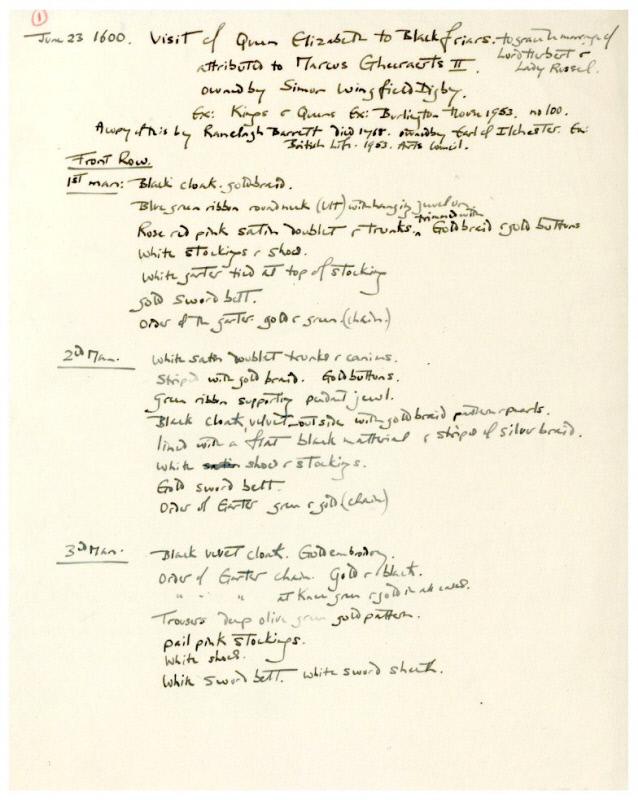 1
June 23 1600. Visit of Queen Elizabeth to Blackfriars. to grace the marriage of
Lord Herbert &
attributed to Marcus Gheeraerts II. Lady Russel.
owned by Simon Wingfield Digby.
Ex: Kings & Queens Ex: Burlington House 1953. no 100.
A copy of this by Ranelagh Barrett died 1768. owned by Earl of Ilchester. Ex:
British Lits. 1953. Arts Council.
Front Row.
1st man: Black cloak. gold braid.
Blue green ribbon round neck (Lit) with hanging jewel on.
trimmed with
Rose red pink satin doublet & trunks. Gold braid & gold buttons
White stockings & shoes.
White garter tied at top of stocking
gold sword belt.
Order of the garter. gold & green. (chain.)
2d Man. White satin doublet trunks & canions.
Striped with gold braid. Gold buttons.
Green ribbon supporting pendant jewel.
Black cloak, velvet outside with gold braid pattern & pearls.
lined with a flat black matterial & stripes of silver braid.
White satin shoes & stockings.
Gold sword belt.
Order of Garter green & gold (chain)
3d Man. Black velvet cloak. Gold embroidery.
Order of Garter chain. Gold & black.
" " " at Knee green & gold in all cases.
Trousers deep olive green gold pattern.
pail pink stockings.
White shoes.
White sword belt. White sword sheath.